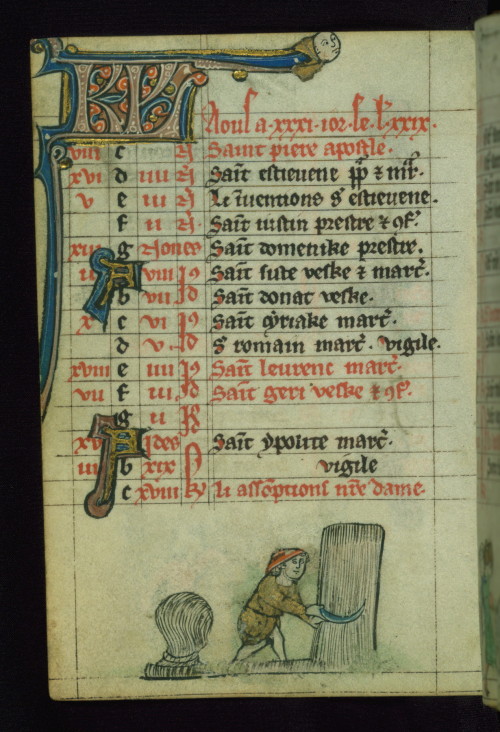 KL
Aoust a · xxxi · ior · le · l'xxix ·
viii c Saint piere apostle ·
xvi d iiii Saīt estieuene pp̄ ⁊ mr̄ ·
v e iii Le ĩuentions s' estieuene ·
f ii Saīt iustin prestre ⁊ ꝯf'
g Nones Saīt domenike prestre ·
A viii Saīt siste veske ⁊ marc̄ ·
b vii Id Saīt donat veske ·
x c vi Saīt cyriake marc̄ ·
d v · Id s' romain marc̄ · vigile ·
xviii e iiii Saīt leurenc marc̄ ·
vii f iii Id Saīt geri veske ⁊ ꝯf'
g ii
A Ides Saīt ypolite marc̄ ·
iiii b xix vigile
c xviii kl li assōptions nr̄e dame ·